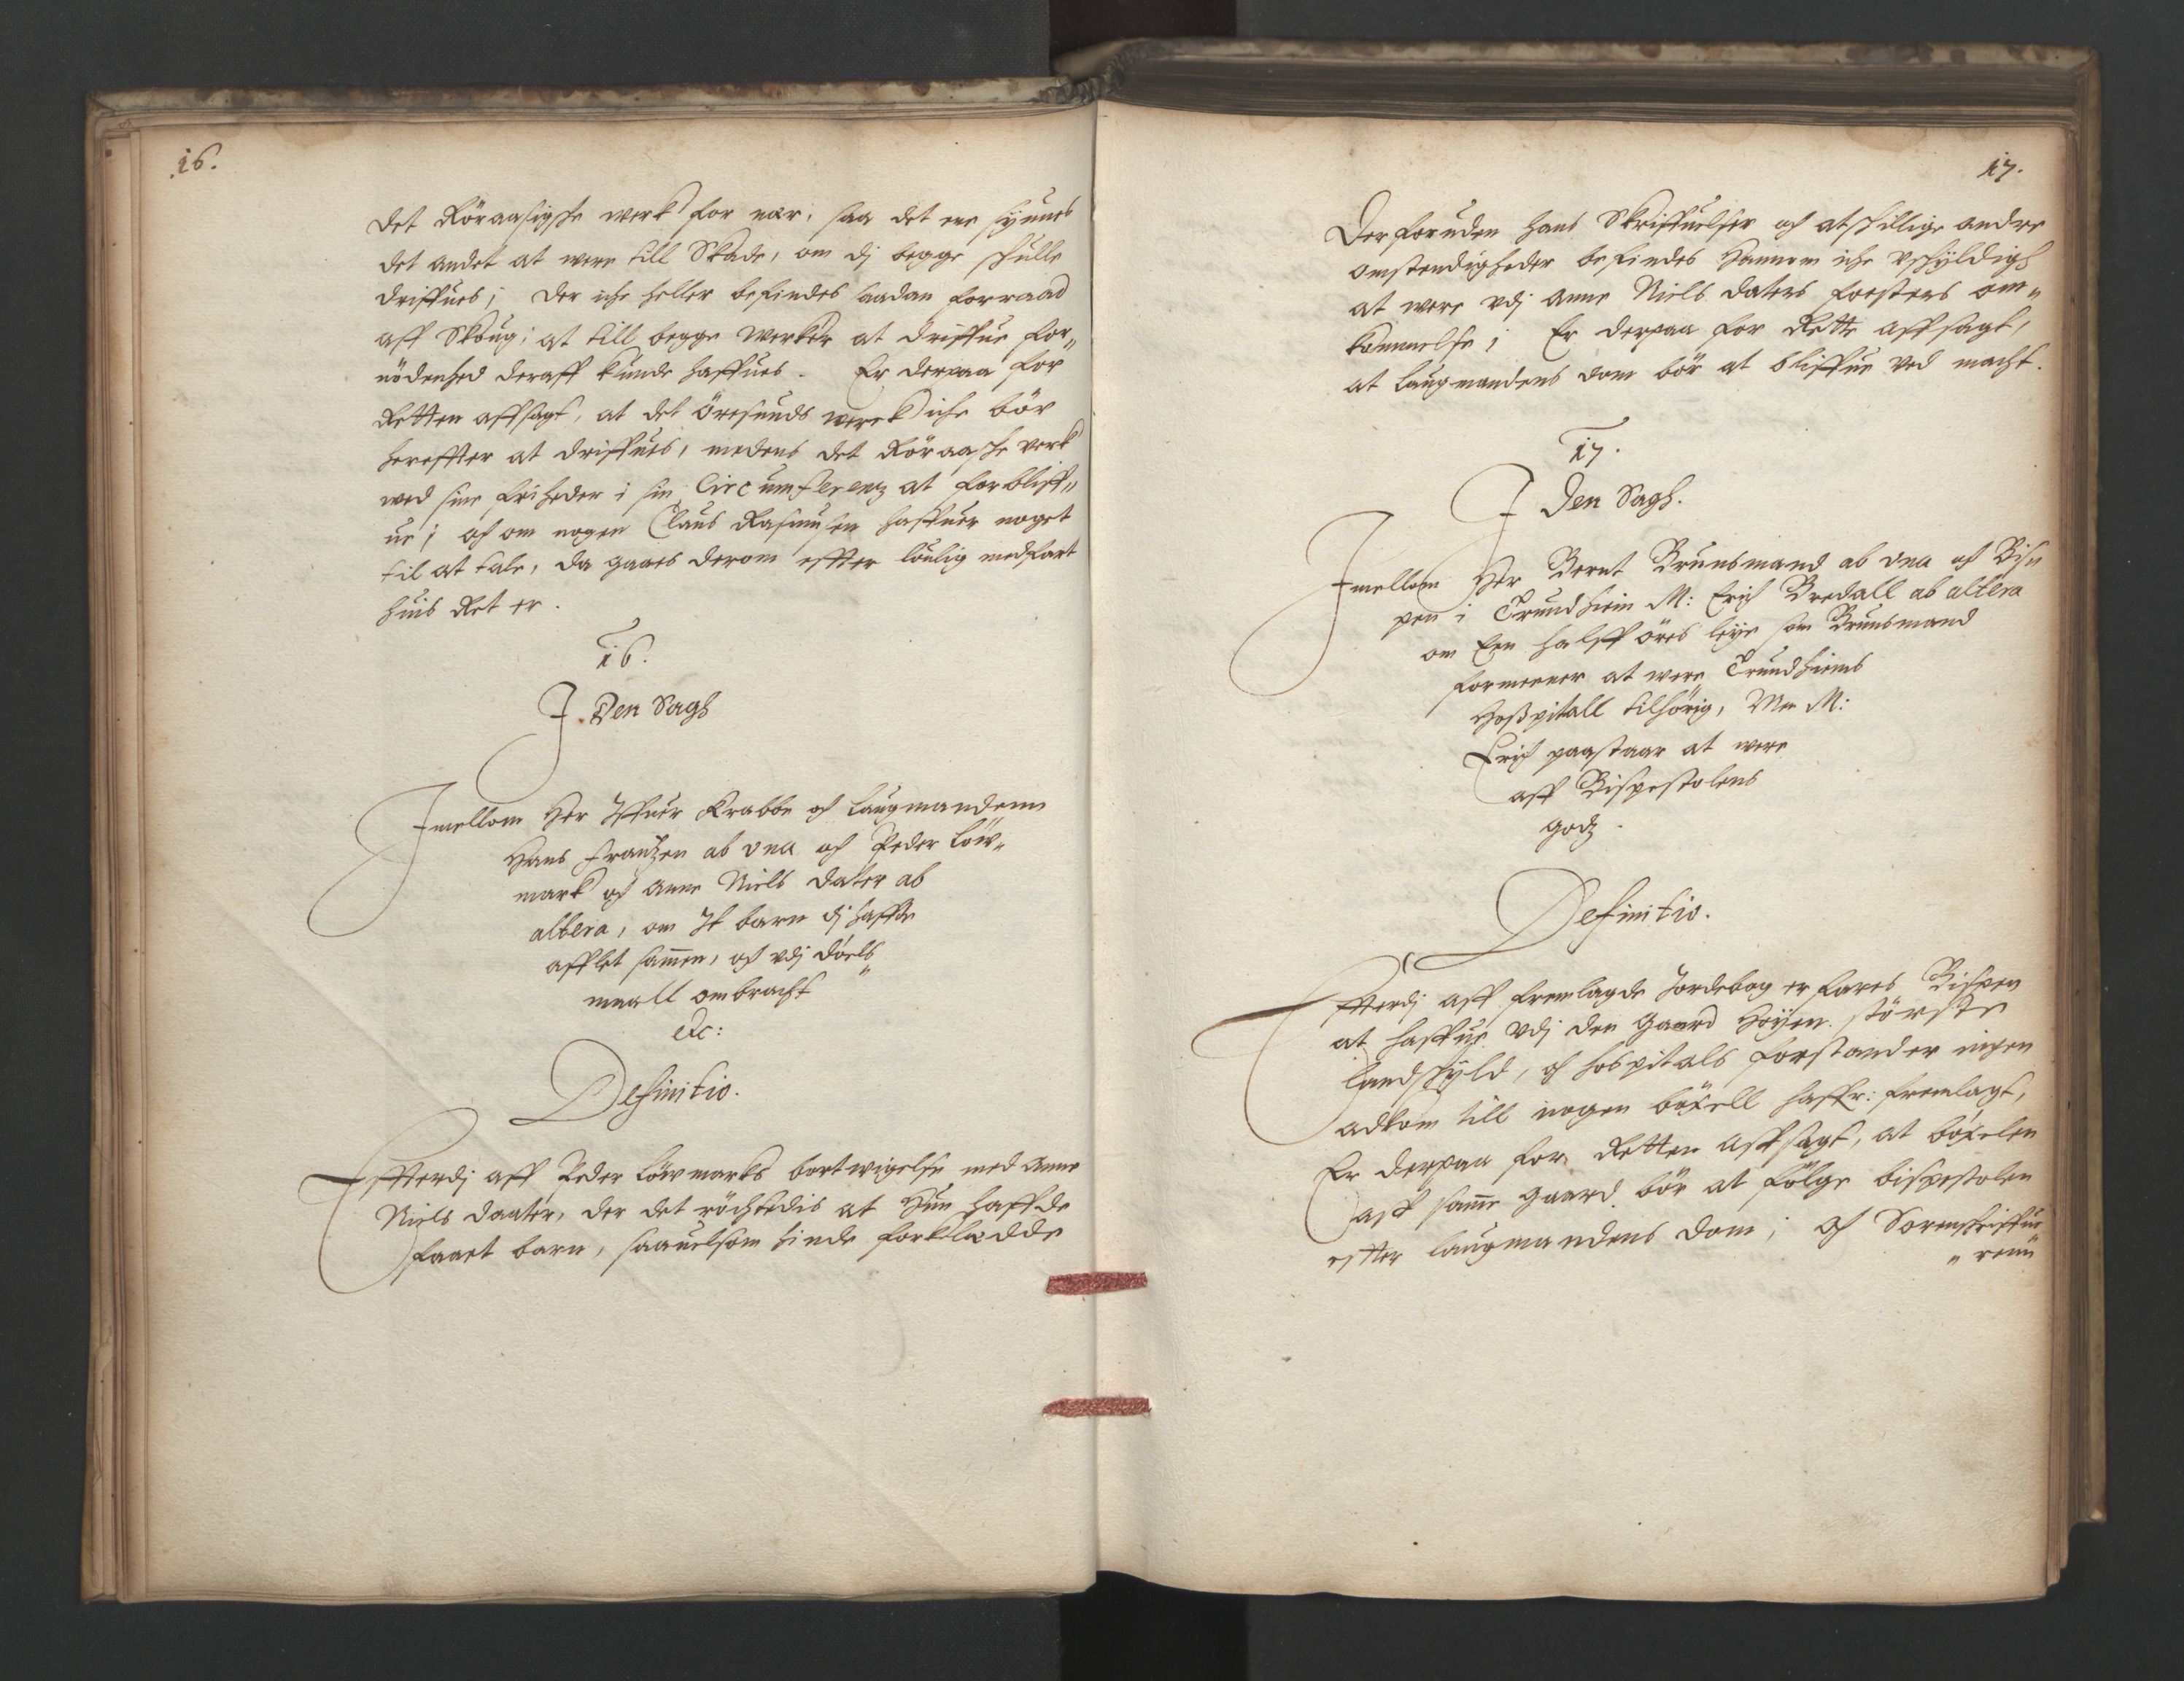 16.
det Röraasigshe werk for nær, saa det ene synnes
det andet at were till Skade, om dj begge shulle
driffues; der iche heller befindes saadan forraad
aff Skoug, at till begge werker at driffue for„
nödenhed deraff kunde haffues. Er derpaa for
Retten affsagt, at det Öresunds werck iche bör
hereffter at driffues, medens det Röraashe verk
wed sine friheder i sin Circumferentz at forbliff„
ue; och om nogen Claus Rasmusen haffuer noget
til at tale, da gaaes derom effter loulig medfart
huis Ret er.
16.
J Den Sagh
Jmellom Her Iffuer Krabbe och Laugmandenn
Hans Frantzen ab una och Peder Löw„
mark och Anne Niels dater ab
altera, om It barn dj haffde
afflet sam̄en, och udj döels„
maall ombracht
etc:
Definitio.
Effterdj aff Peder Löwmarks bortwigelse med Anne
Niels daater, der det röchtedis at Hun haffde
faaet barn, saauelsom hinde forklædde
17.
Derforuden hans Skriffuelser och atshillige andre
omstendigheder befindes Hannem iche uskyldigh
at were udj Anne Niels daters fosters om„
kommelse; Er derpaa for Rette affsagt,
at Laugmandens dom bör at bliffue ved macht.
17.
J Den Sagh.
Jmellom Her Bernt Brunsmand ab una och Bis„
pen i Trundhiem M: Erich Bredall ab altera
om Een halff öres leye som Brunsmand
formeener at were Trundhiems
Hoßpitall tilhörig, Men M:
Erich paastaar at were
aff Bispestolens
godz.
Definitio.
Effterdj aff fremlagde Jordebog erfares Bispen
at haffue udj den Gaard Höyen störste
Landskyld, och hospitals forstander ingen
adkom till nogen böxell haffr: fremlagt,
Er derpaa for Retten affsagt, at böxelen
aff sam̄e gaard bör at fölge bispestolen
effter laugmandens dom; och Sorenskriffue
„renn